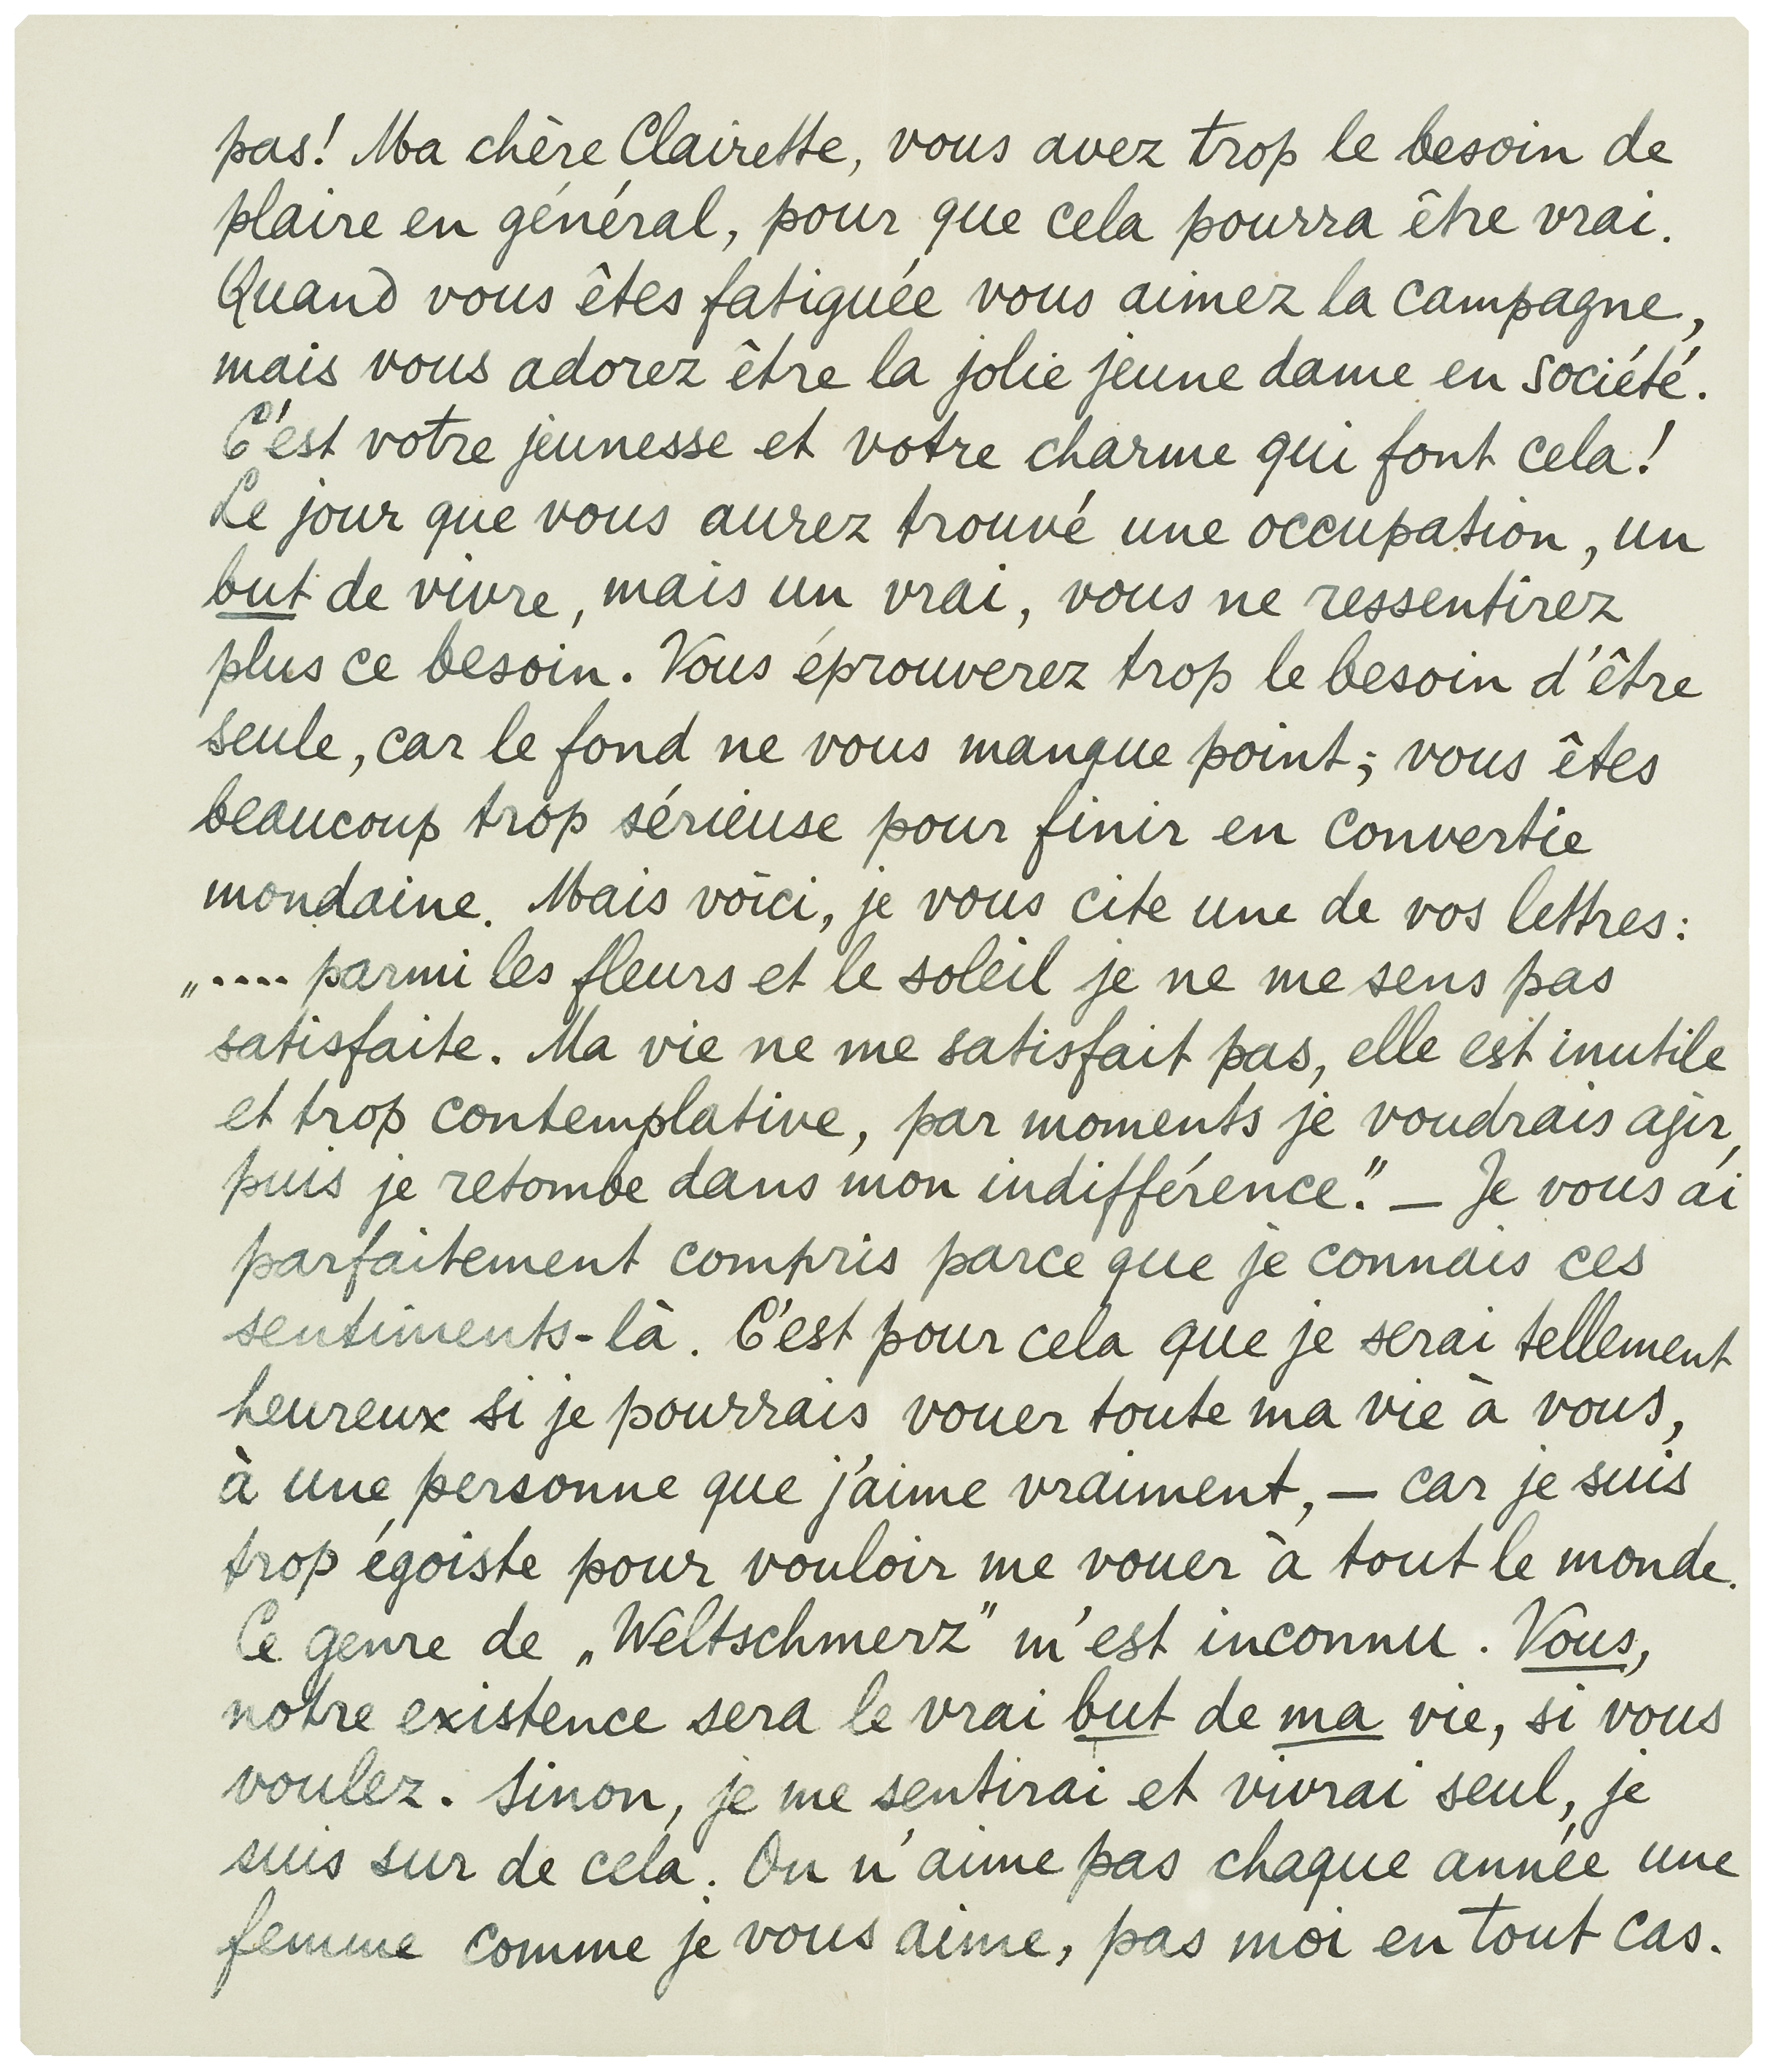 pas! Ma chère Clairette, vous avez trop le besoin de
plaire en général, pour que cela pourra être vrai.
Quand vous êtes fatiguée vous aimez la campagne,
mais vous adorez être la jolie jeune dame en société.
C'est votre jeunesse et votre charme qui font cela!
Le jour que vous aurez trouvé une occupation, un
but de vivre, mais un vrai, vous ne ressentirez
plus ce besoin. Vous éprouverez trop le besoin d'être
seule, car le fond ne vous manque point; vous êtes
beaucoup trop sérieuse pour finir en convertie
mondaine. Mais voici, je vous cite une de vos lettres:
„.... parmi les fleurs et le soleil je ne me sens pas
satisfaite. Ma vie ne me satisfait pas, elle est inutile
et trop contemplative, par moments je voudrais agir,
puis je retombe dans mon indifférence." — Je vous ai
parfaitement compris parce que je connais ces
sentiments-là. C'est pour cela que je serai tellement
heureux si je pourrais vouer toute ma vie à vous,
à une personne que j'aime vraiment, — car je suis
trop égoiste pour vouloir me vouer à tout le monde.
Ce genre de „Weltschmerz" m'est inconnu. Vous,
notre existence sera le vrai but de ma vie, si vous
voulez. Sinon, je me sentirai et vivrai seul, je
suis sur de cela. On n'aime pas chaque année une
femme comme je vous aime, pas moi en tout cas.